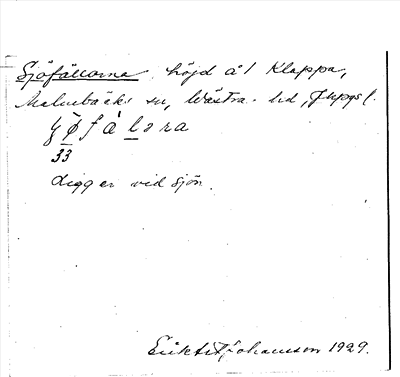 Sjöfållorna. höjd å 1 Klappa,
Malmbäcks sn, Västra. hd, Jkpgs l.
ʃø̄fàləra
33
Ligger vid sjön.
Erik H. Johansson 1929.